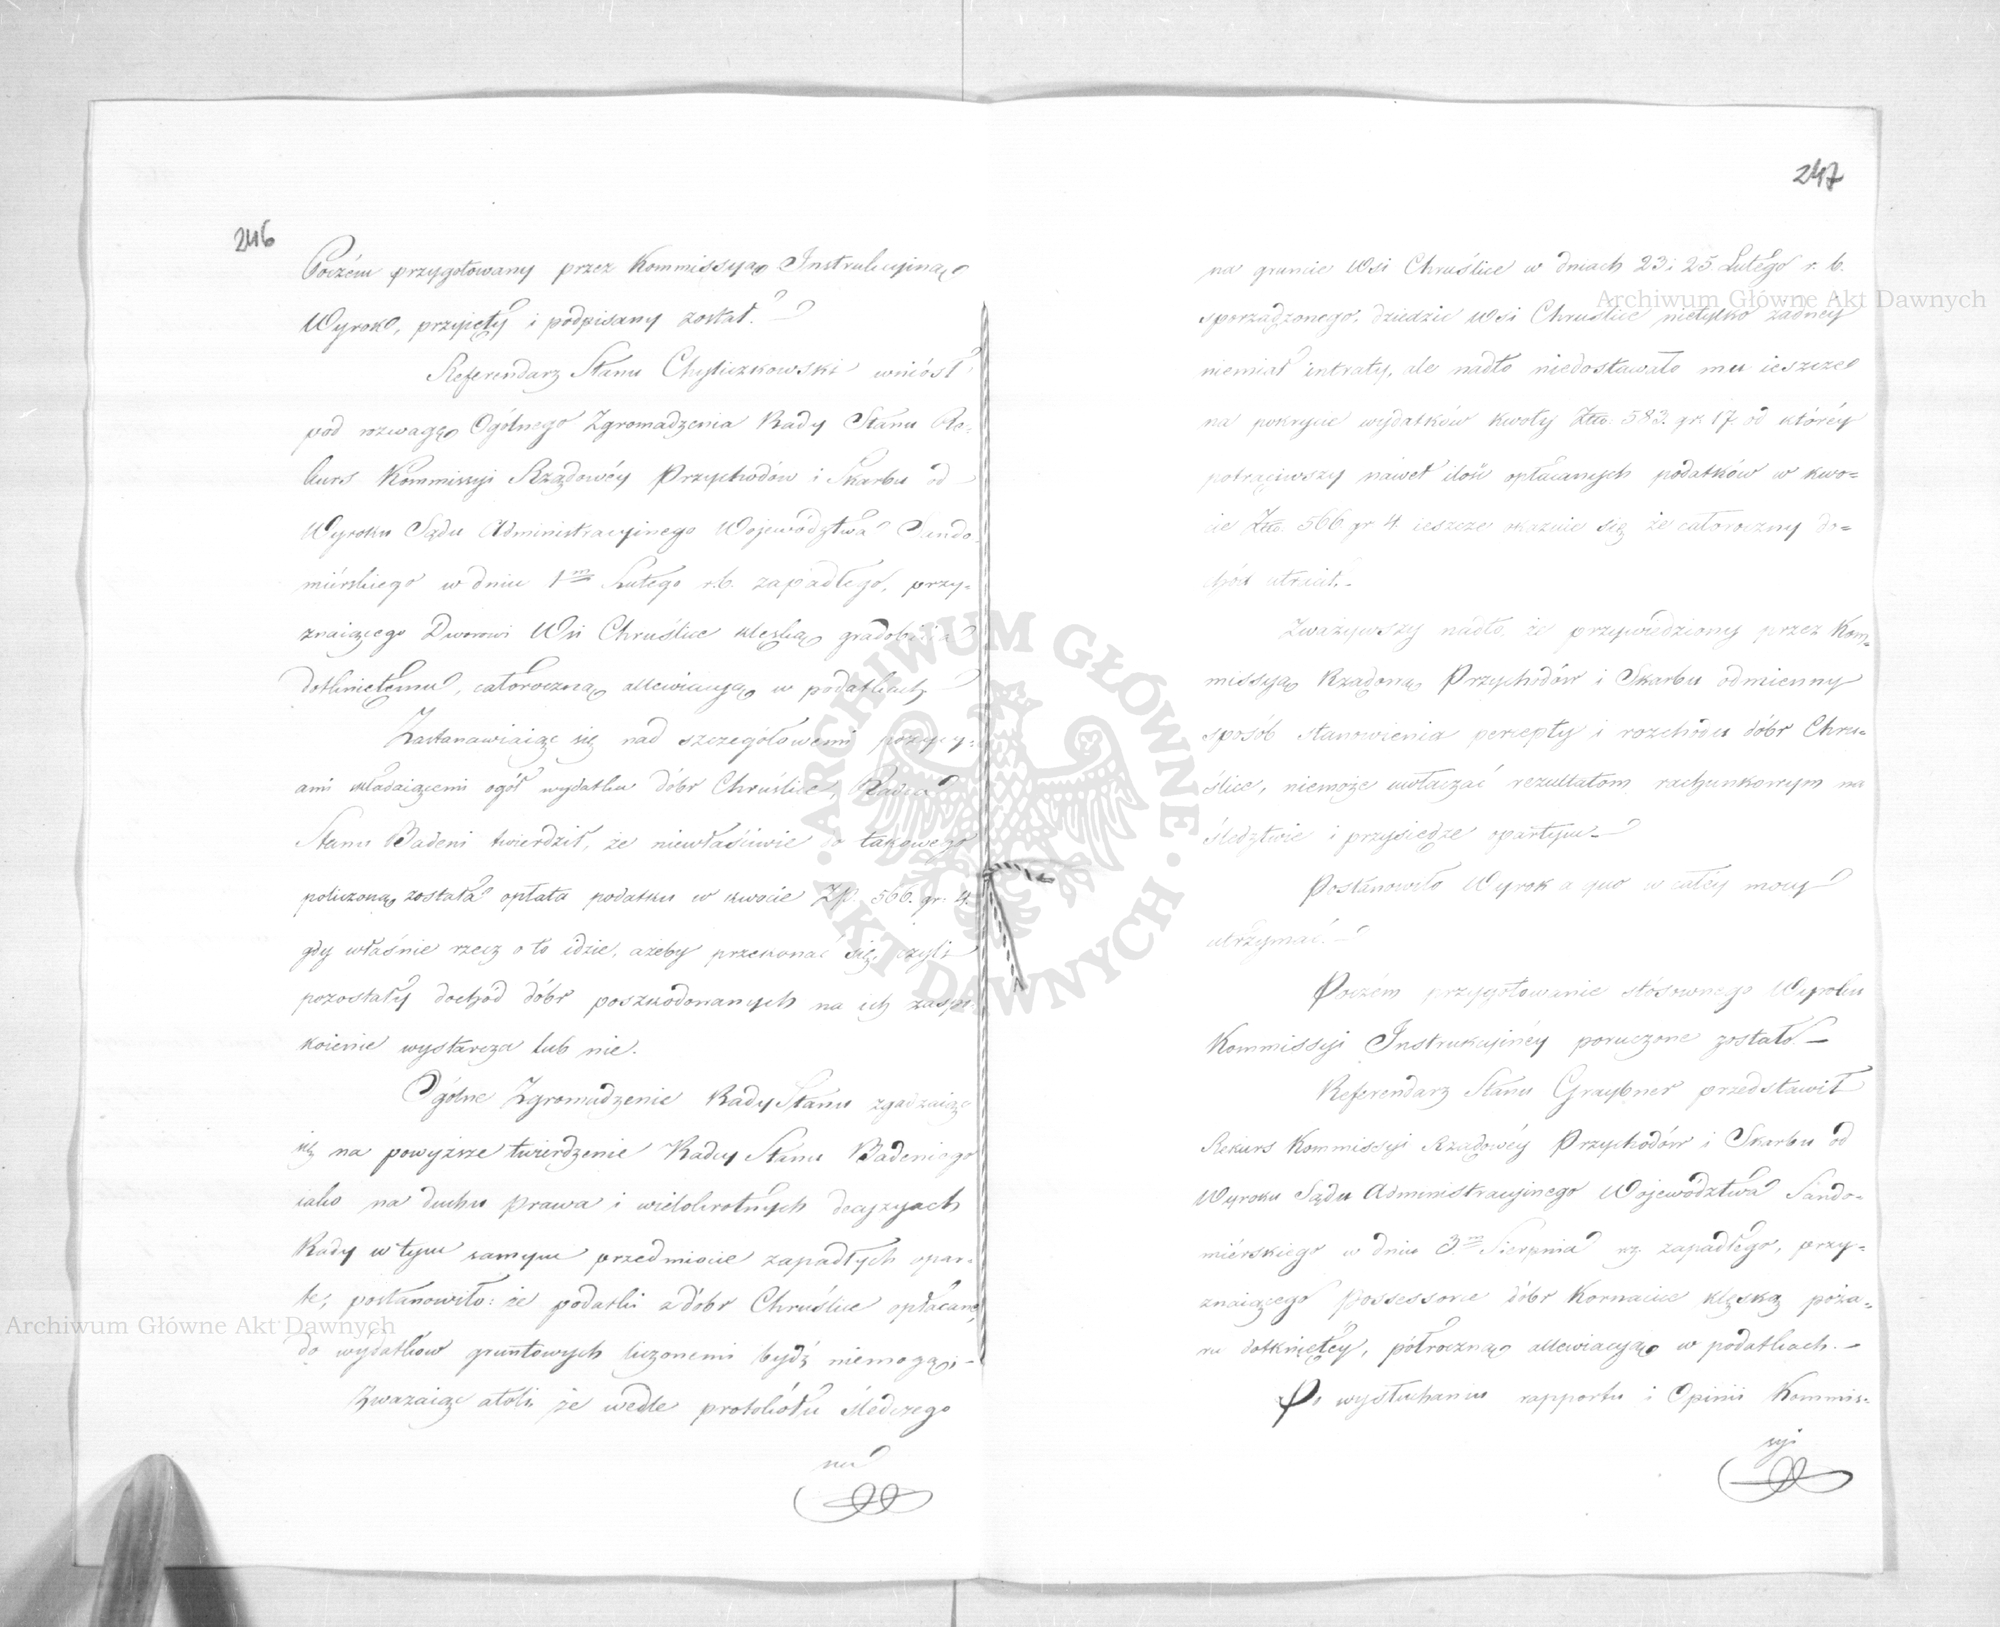 246
Poczém przygotowany przez Kommissyą Instrukcyiną
Wyrok, przyięty i podpisany został.
Referendarz Stanu Chyliczkowski wniósł
pod rozwagę Ogólnego Zgromadzenia Rady Stanu Re-
kurs Kommissyi Rządowéy Przychodów i Skarbu od
Wyroku Sądu Administracyjnego Województwa Sando-
miérskiego w dniu 1m Lutego r.b. zapadłego, przy-
znaiącego Dworowi Wsi Chruślice klęską gradobicia
dotkniętemu, całoroczną allewiacyą w podatkach
Zastanawiaiąc się nad szczegółowemi pozycy-
ami składaiącemi ogół wydatku dóbr Chruślice, Radca
Stanu Badeni twierdził, że niewłaściwie do takowego
policzoną została opłata podatku w kwocie Zł. 566. gr. 4.
gdy właśnie rzecz o to idzie, ażeby przekonać się, czyli
pozostały dochód dóbr poszkodowanych na ich zaspo-
koienie wystarcza lub nie.
Ogólne Zgromadzenie Rady Stanu zgadzaiąc
się na powyższe twierdzenie Radcy Stanu Badeniego
iako na duchu prawa i wielokrotnych decyzyach
Rady w tym samym przedmiocie zapadłych opar-
te, postanowiło: że podatki z dóbr Chruślice opłacane,
do wydatków gruntowych liczonemi bydź niemogą;
Zważaiąc atoli, że wedle protokółu śledczego
na
247
na gruncie Wsi Chruślice w dniach 23 i 25 Lutego r. b.
sporządzonego, dziedzic Wsi Chruślice nietylko żadnéy
niemiał intraty, ale nadto niedostawało mu ieszcze
na pokrycie wydatków kwoty Złto. 583. gr. 17. od któréy
potrąciwszy nawet ilość opłacanych podatków w kwo-
cie Złto. 566 gr 4. ieszcze okazuie się że całoroczny do-
chód utracił.
Zważywszy nadto, że przywiedziony przez Kom-
missyą Rządową Przychodów i Skarbu odmienny
sposób stanowienia percepty i rozchodu dóbr Chru-
ślice, niemoże uwłaczać rezultatom rachunkowym na
śledztwie i przysiędze opartym
Postanowiło Wyrok a quo w całéy mocy
utrzymać.
Poczém przygotowanie stósownego Wyroku
Kommissyi Instrukcyinéy poruczone zostało.
Referendarz Stanu Graybner przedstawił
Rekurs Kommissyi Rządowéy Przychodów i Skarbu od
Wyroku Sądu Administracyjnego Województwa Sando-
miérskiego w dniu 3m Sierpnia rz. zapadłego, przy-
znaiącego Possessorce dóbr Kornacice klęską poża-
ru dotkniętéy, półroczną allewiacyą w podatkach.
Po wysłuchaniu rapportu i Opinii Kommis-
syi
Archiwum Główne Akt Dawnych
Archiwum Główne Akt Dawnych
ARCHIWUM GŁÓWNE AKT DAWNYCH